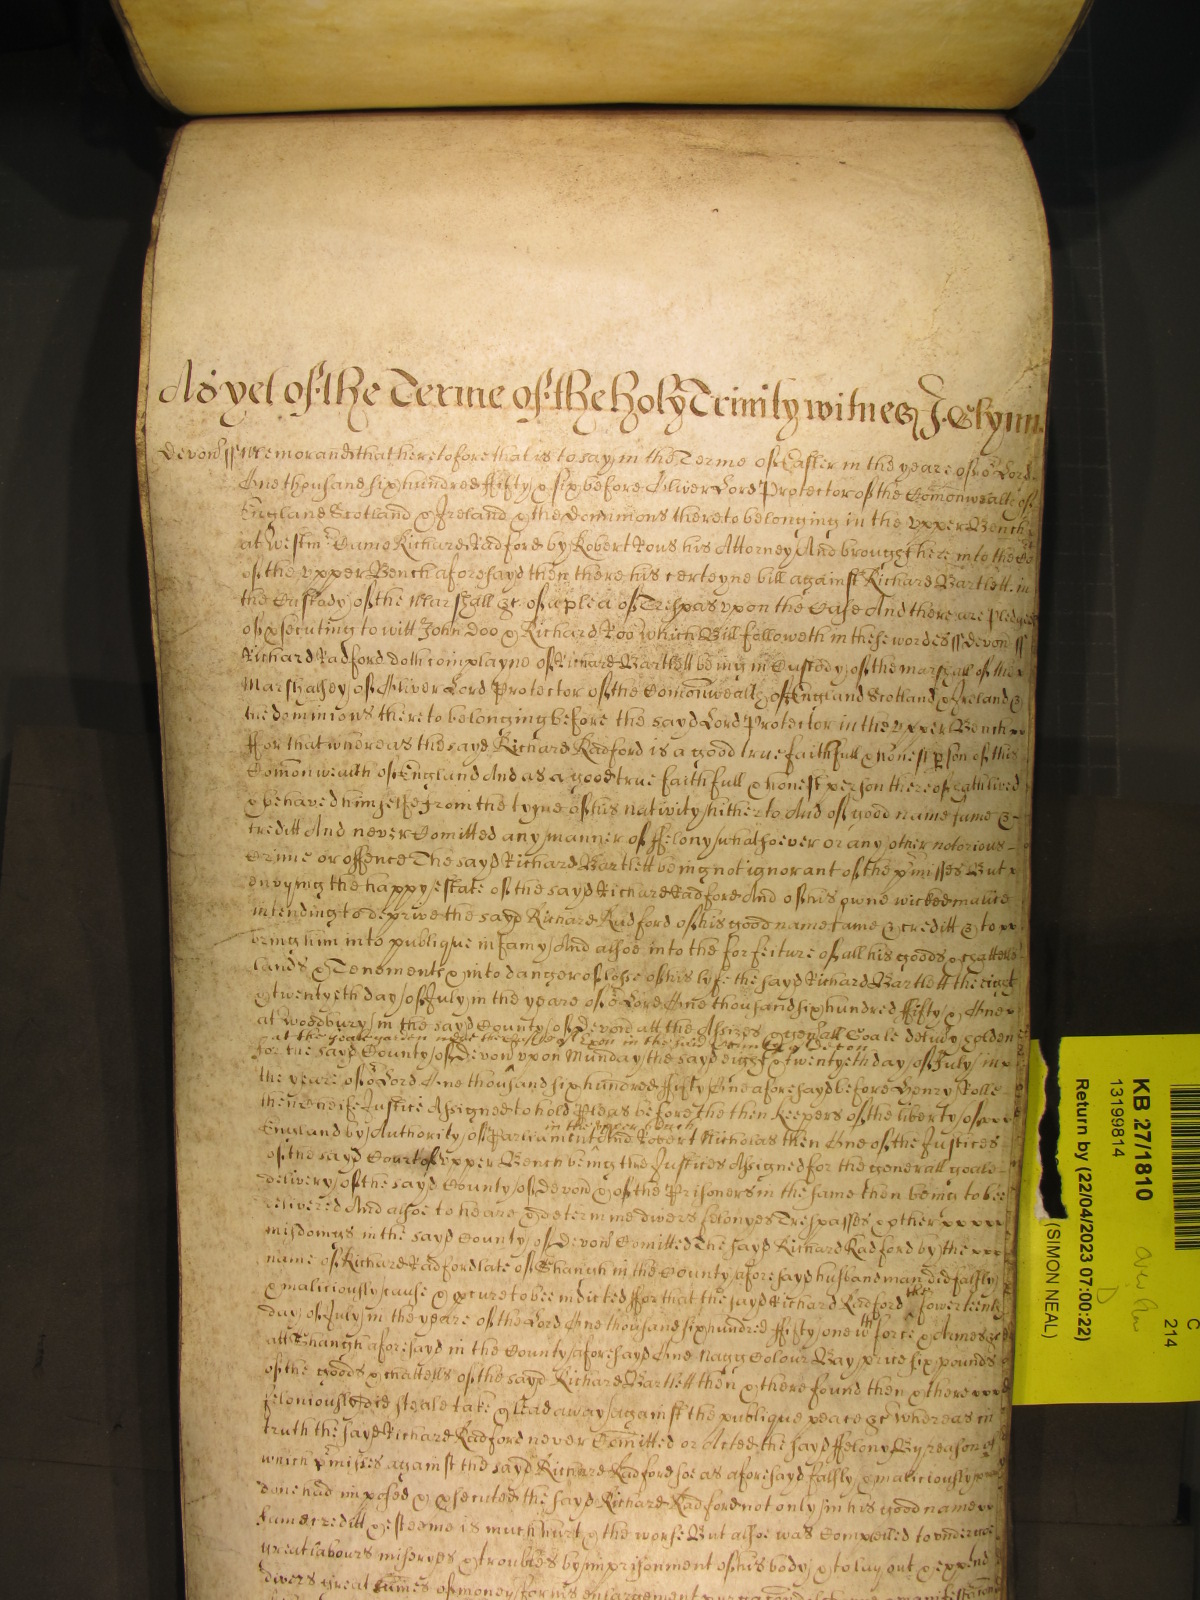 As yet of the Terme of the holy Trinity witnes J. Glynn.
Devon ss Memorand that heretofore that is to say in the Terme of Easter in the yeare of or Lord
One thousand six hundred ffifty & six before Oliver Lord Protector of the Comonwealth of
England Scotland & Ireland & the dominions thereto belonging in the vpper Bench
at Westm Came Richard Radford by Robert Rous his Attorney And brought here into the Co
of the vpper Bench aforesayd then there his certeyne bill against Richard Bartlett in
the Custody of the Marshall &c of a plea of Trespas vpon the Case And there are pledges
of psecuting to witt John Doo & Richard Roo which Bill followeth in these wordes ss Devon ss
Richard Radford doth complayne of Richard Bartlett being in Custody of the marshall of the
Marshalsey of Oliver Lord Protector of the Comonwealth of England Scotland & Ireland &
the dominions thereto belonging before the sayd Lord Protector in the vpper Bench
ffor that whereas the sayd Richard Radford is a good true faithfull & honest pson of this
Comonwealth of England And as a good true faithfull & honest person thereof hath lived
& behaved himselfe from the tyme of his nativity hitherto And of good name fame &
creditt And never Comitted any manner of ffelony whatsoever or any other notorious
Crime or offence The sayd Richard Bartlett being not ignorant of the pmisses But
envying the happy estate of the sayd Richard Radford And of his owne wicked malice
intending to deprive the sayd Richard Radford of his good name fame & creditt & to
bring him into publique infamy And alsoe into the forfeiture of all his goods & chattells
lands & Tenements & into danger of losse of his lyfe the sayd Richard Bartlett the eight
& twentyeth day of July in the yeare of or Lord One thousand six hundred ffifty & One
at Woodbury in the sayd County of Devon att the Assizes & gen'all Goale delivy holden
at the
for the sayd County of Devon vpon Munday the sayd eight & twentyeth day of July in
the yeare of or Lord One thousand six hundred ffifty One aforesayd before Henry Rolle
then Cheife Justice Assigned to hold Pleas before the then Keepers of the liberty of
in the vpper bench
England by Authority of Parliament And Robert Nicholas then One of the Justices
of the sayd Court of vpper Bench being the Justices Assigned for the generall goale
delivery of the sayd County of Devon & of the Prisoners in the same then being to bee
delivered And alsoe to heare & determine divers felonyes Trespasses & other
misdoings in the sayd County of Devon Comitted The sayd Richard Radford by the
name of Richard Radford late of Changh in the County aforesayd husbandman did falsly
& maliciously cause & pcure to bee indicted ffor that the sayd Richard Radford the fowerteenth
day of July in the yeare of the Lord One thousand six hundred ffifty one wth force & Armes &c
att Changh aforesayd in the County aforesayd One Nagg Colour Bay price six pounds
of the goods & chattells of the sayd Richard Bartlett then & there found then & there
feloniously did steale take & lead away against the publique peace &c Whereas in
truth the sayd Richard Radford never Comitted or Acted the sayd ffelony By reason of
which pmisses against the sayd Richard Radford soe as aforesayd falsly & maliciously
done had imposed & psecuted the sayd Richard Radford not only in his good name
fame creditt & esteeme is much hurt & the worse But alsoe was Compelled to vndergoe
great labours miseryes & troubles by imprisonment of his body & to lay out & expend
divers great sumes of money for his enlargement
C
214
KB 27/1810
13199814
Return by (22/04/2023 07:00:22)
(SIMON NEAL)